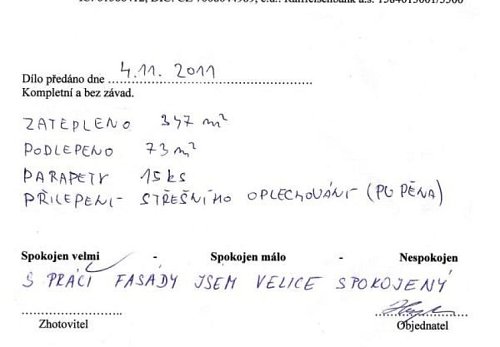 Dílo předáno dne 4.11. 2011
Kompletní a bez závad.
ZATEPLENO 347 m²
PODLEPENO 73 m²
PARAPETY 15 ks
PŘILEPENÍ - STŘEŠNÍHO OPLECHOVÁNÍ (PU PĚNA)
Spokojen velmi - Spokojen málo - Nespokojen
S PRÁCÍ FASÁDY JSEM VELICE SPOKOJENÝ
Zhotovitel Objednatel